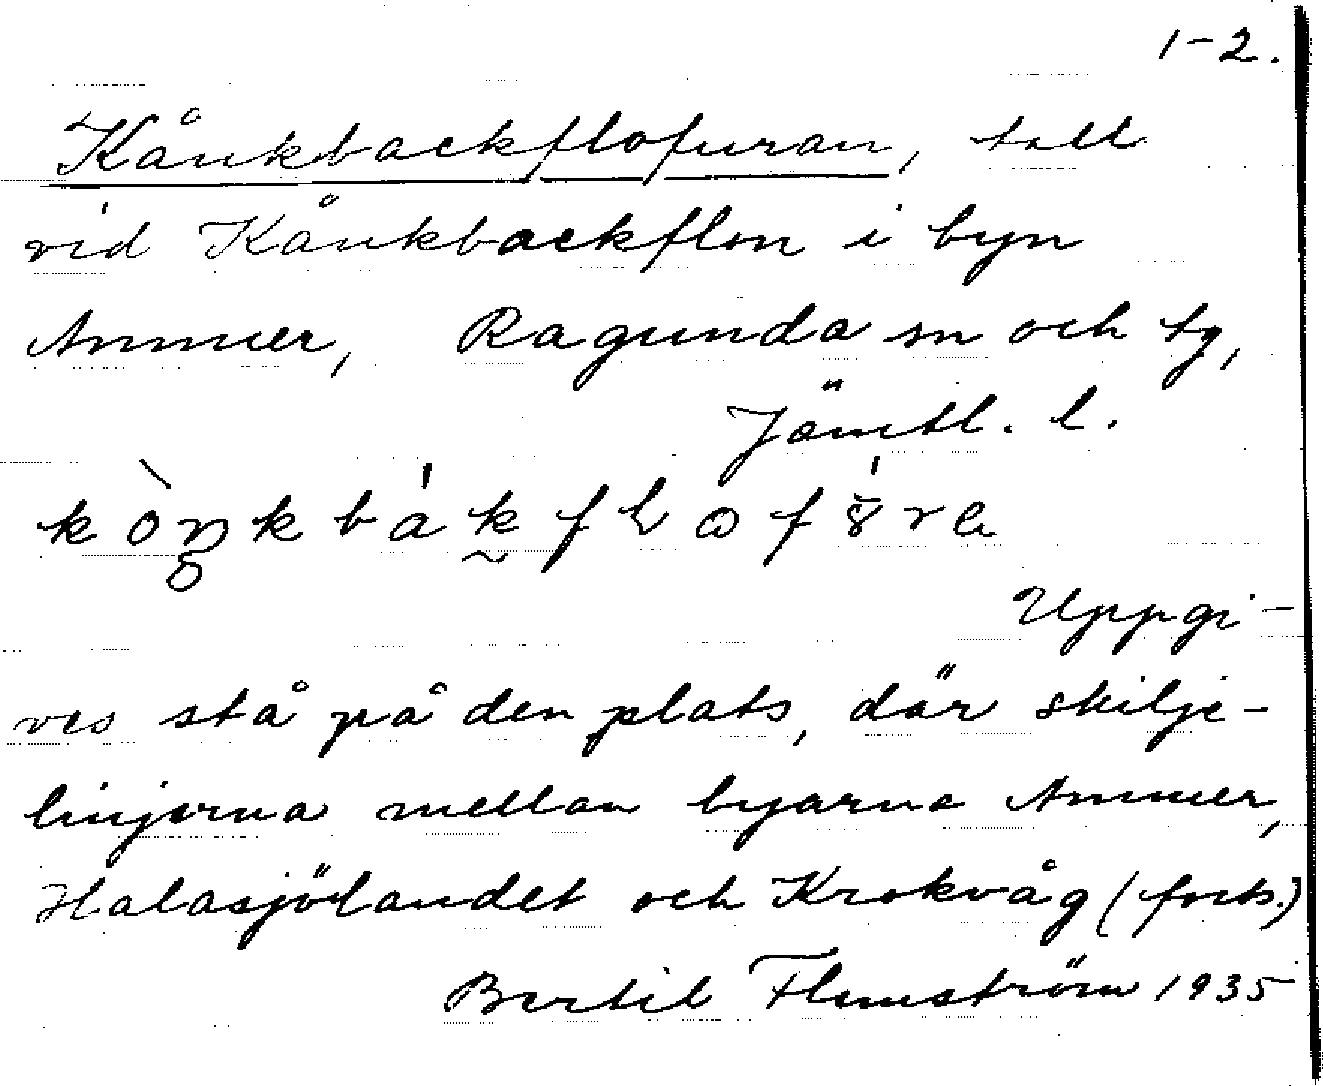 1-2.
Kånkbackflofuran, tall
vid Kånkbackflon i byn
Ammer, Ragunda sn och tg,
Jämtl. l.
Uppgi-
ves stå på den plats, där skilje-
linjerna mellan byarna Ammer,
Halasjölandet och Krokvåg (forts.)
Bertil Flemström 1935